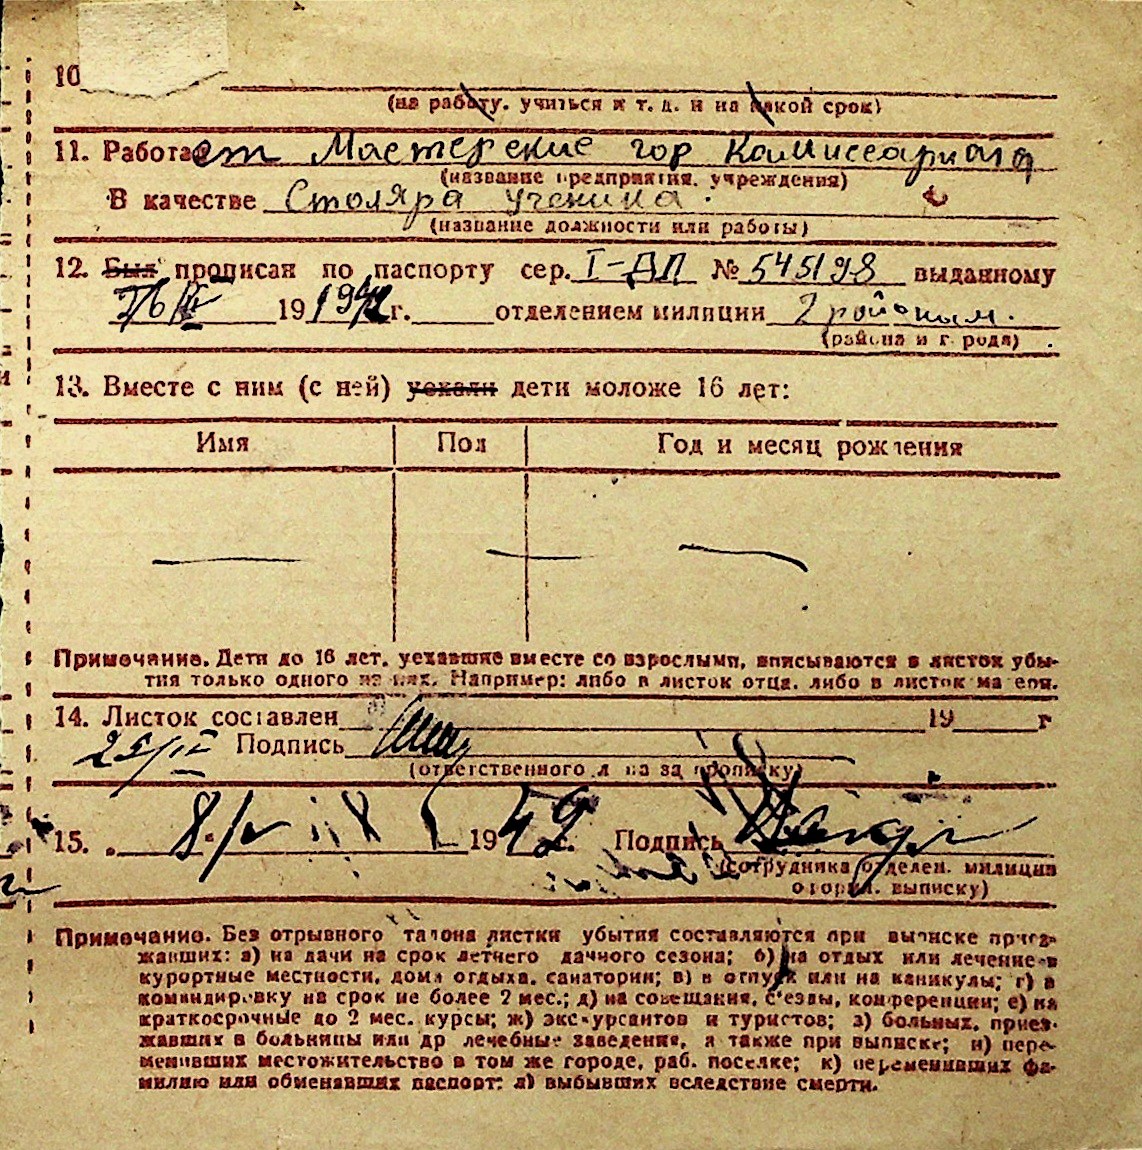 10
(на работу. учиться и т. д. и на какой срок)
11. Работает Мастерские гор Комиссариата
(название предприятия. учреждения)
В качестве Столяра ученика.
(название должности или работы)
12. Был прописан по паспорту сер. I-ДЛ № 545198 выданному
19 г. отделением милиции 2
(района и г рода)
13. Вместе с ним (с ней) уехали дети моложе 16 лет:
Имя Пол Год и месяц рождения
Примечание. Дети до 16 лет, уехавшие вместе со взрослыми, вписываются в листок убы-
тия только одного из них. Например: либо в листок отца. либо в листок ма ери.
14. Листок составлен 19 г
Подпись
(ответственного л ца за прописку)
15. 19 Подпись
(сотрудника отделен. милиции
выписку)
Примечание. Без отрывного талона листки убытия составляются при выписке приез-
жавших: а) на дачи на срок летнего дачного сезона; б) на отдых или лечение в
курортные местности, дома отдыха, санатории; в) в отпуск или на каникулы; г) в
командировку на срок не более 2 мес.; д) на совещания, с'езды, конференции; е) на
краткосрочные до 2 мес. курсы; ж) экскурсантов и туристов; з) больных, приез-
жавших в больницы или др лечебные заведения, а также при выписке; и) пере-
менивших местожительство в том же городе, раб. поселке; к) переменивших фа-
милию или обменявших паспорт; л) выбывших вследствие смерти.